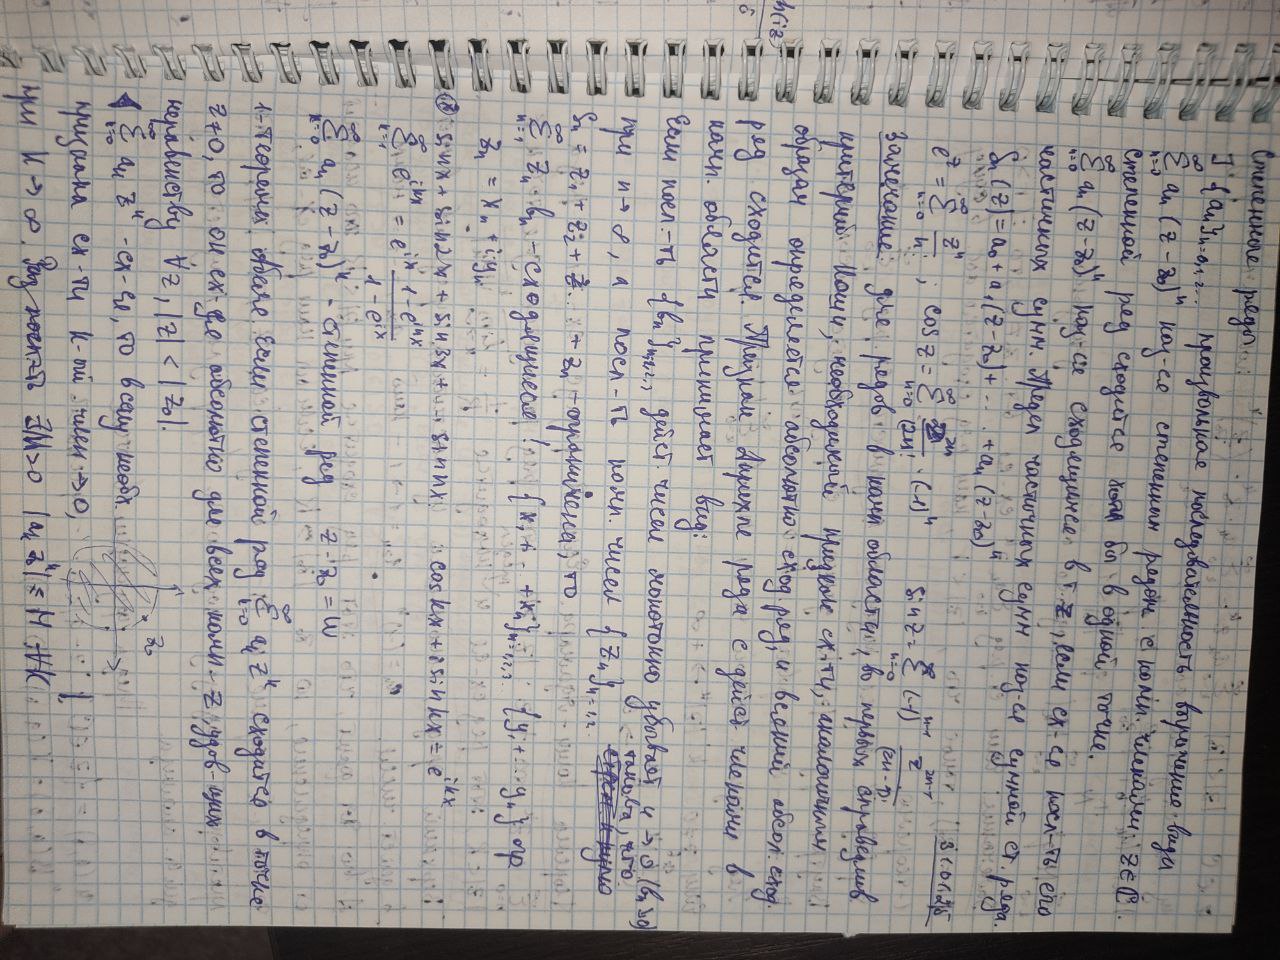 Степенные ряды
] {aₙ}ₙ₌₀,₁,₂... произвольные последовательность выражение вида
∑ₙ₌₀^∞ aₙ(z-z₀)ⁿ наз-ся степенным рядом с компл. членами z∈ℂ.
степенной ряд сходится хотя бы в одной точке.
∑ₙ₌₀^∞ aₙ(z-z₀)ⁿ наз-ся сходящимся в т. z, если сх-ся посл-ть его
частичных сумм. Предел частичных сумм наз-ся суммой ст. ряда.
Sₙ(z)=a₀+a₁(z-z₀)+...+aₙ(z-z₀)ⁿ
e^z = ∑ₙ₌₀^∞ zⁿ/n! ; cos z = ∑ₙ₌₀^∞ z²ⁿ/(2n)! · (-1)ⁿ sin z = ∑ₙ₌₀^∞ (-1)ⁿ⁻¹ z²ⁿ⁻¹/(2n-1)!
Замечание: для рядов в комп области, во первых справедлив
критерий Коши, необходимый признак сх-ти, аналогичным
образом определяется абсолютно сход ряд, и всякий абсол. сход.
ряд сходится. Признак Дирихле ряда с действ членами в
комп. области принимает вид:
Если посл-ть {bₙ}ₙ₌₁,₂.. действ. чисел монотонно убывает и →0 (bₙ↘0)
при n→∞, а посл-ть комп. чисел {zₙ}ₙ₌₁,₂.. такова, что
Sₙ = z₁+z₂+...+zₙ - ограничена, то
∑ₙ₌₁^∞ zₙbₙ - сходящиеся! {x₁+...+xₙ}ₙ₌₁,₂.. {y₁+...yₙ} огр
zₙ = xₙ+iyₙ
sinx + sin2x + sin3x+...sin nx; cos kx + i sin kx = e^{ikx}
∑ₖ₌₁ e^{ikx} = e^{ix} (1-e^{inx})/(1-e^{ix})
∑ₙ₌₀^∞ aₙ(z-z₀)ⁿ - степенной ряд z-z₀=w
1-теорема Абеля Если степенной ряд ∑ₙ₌₀^∞ aₙzⁿ сходится в точке
z≠0, то он сх-ся абсолютно для всех компл-z, удов-щих
неравенству ∀z, |z|<|z₀|.
◀ ∑ₙ₌₀^∞ aₙz₀ⁿ - сх-ся, то в силу необх z₀
признака сх-ти n-ый член →0,
при n→∞ ∃M>0 |aₙz₀ⁿ| ≤ M ∀n